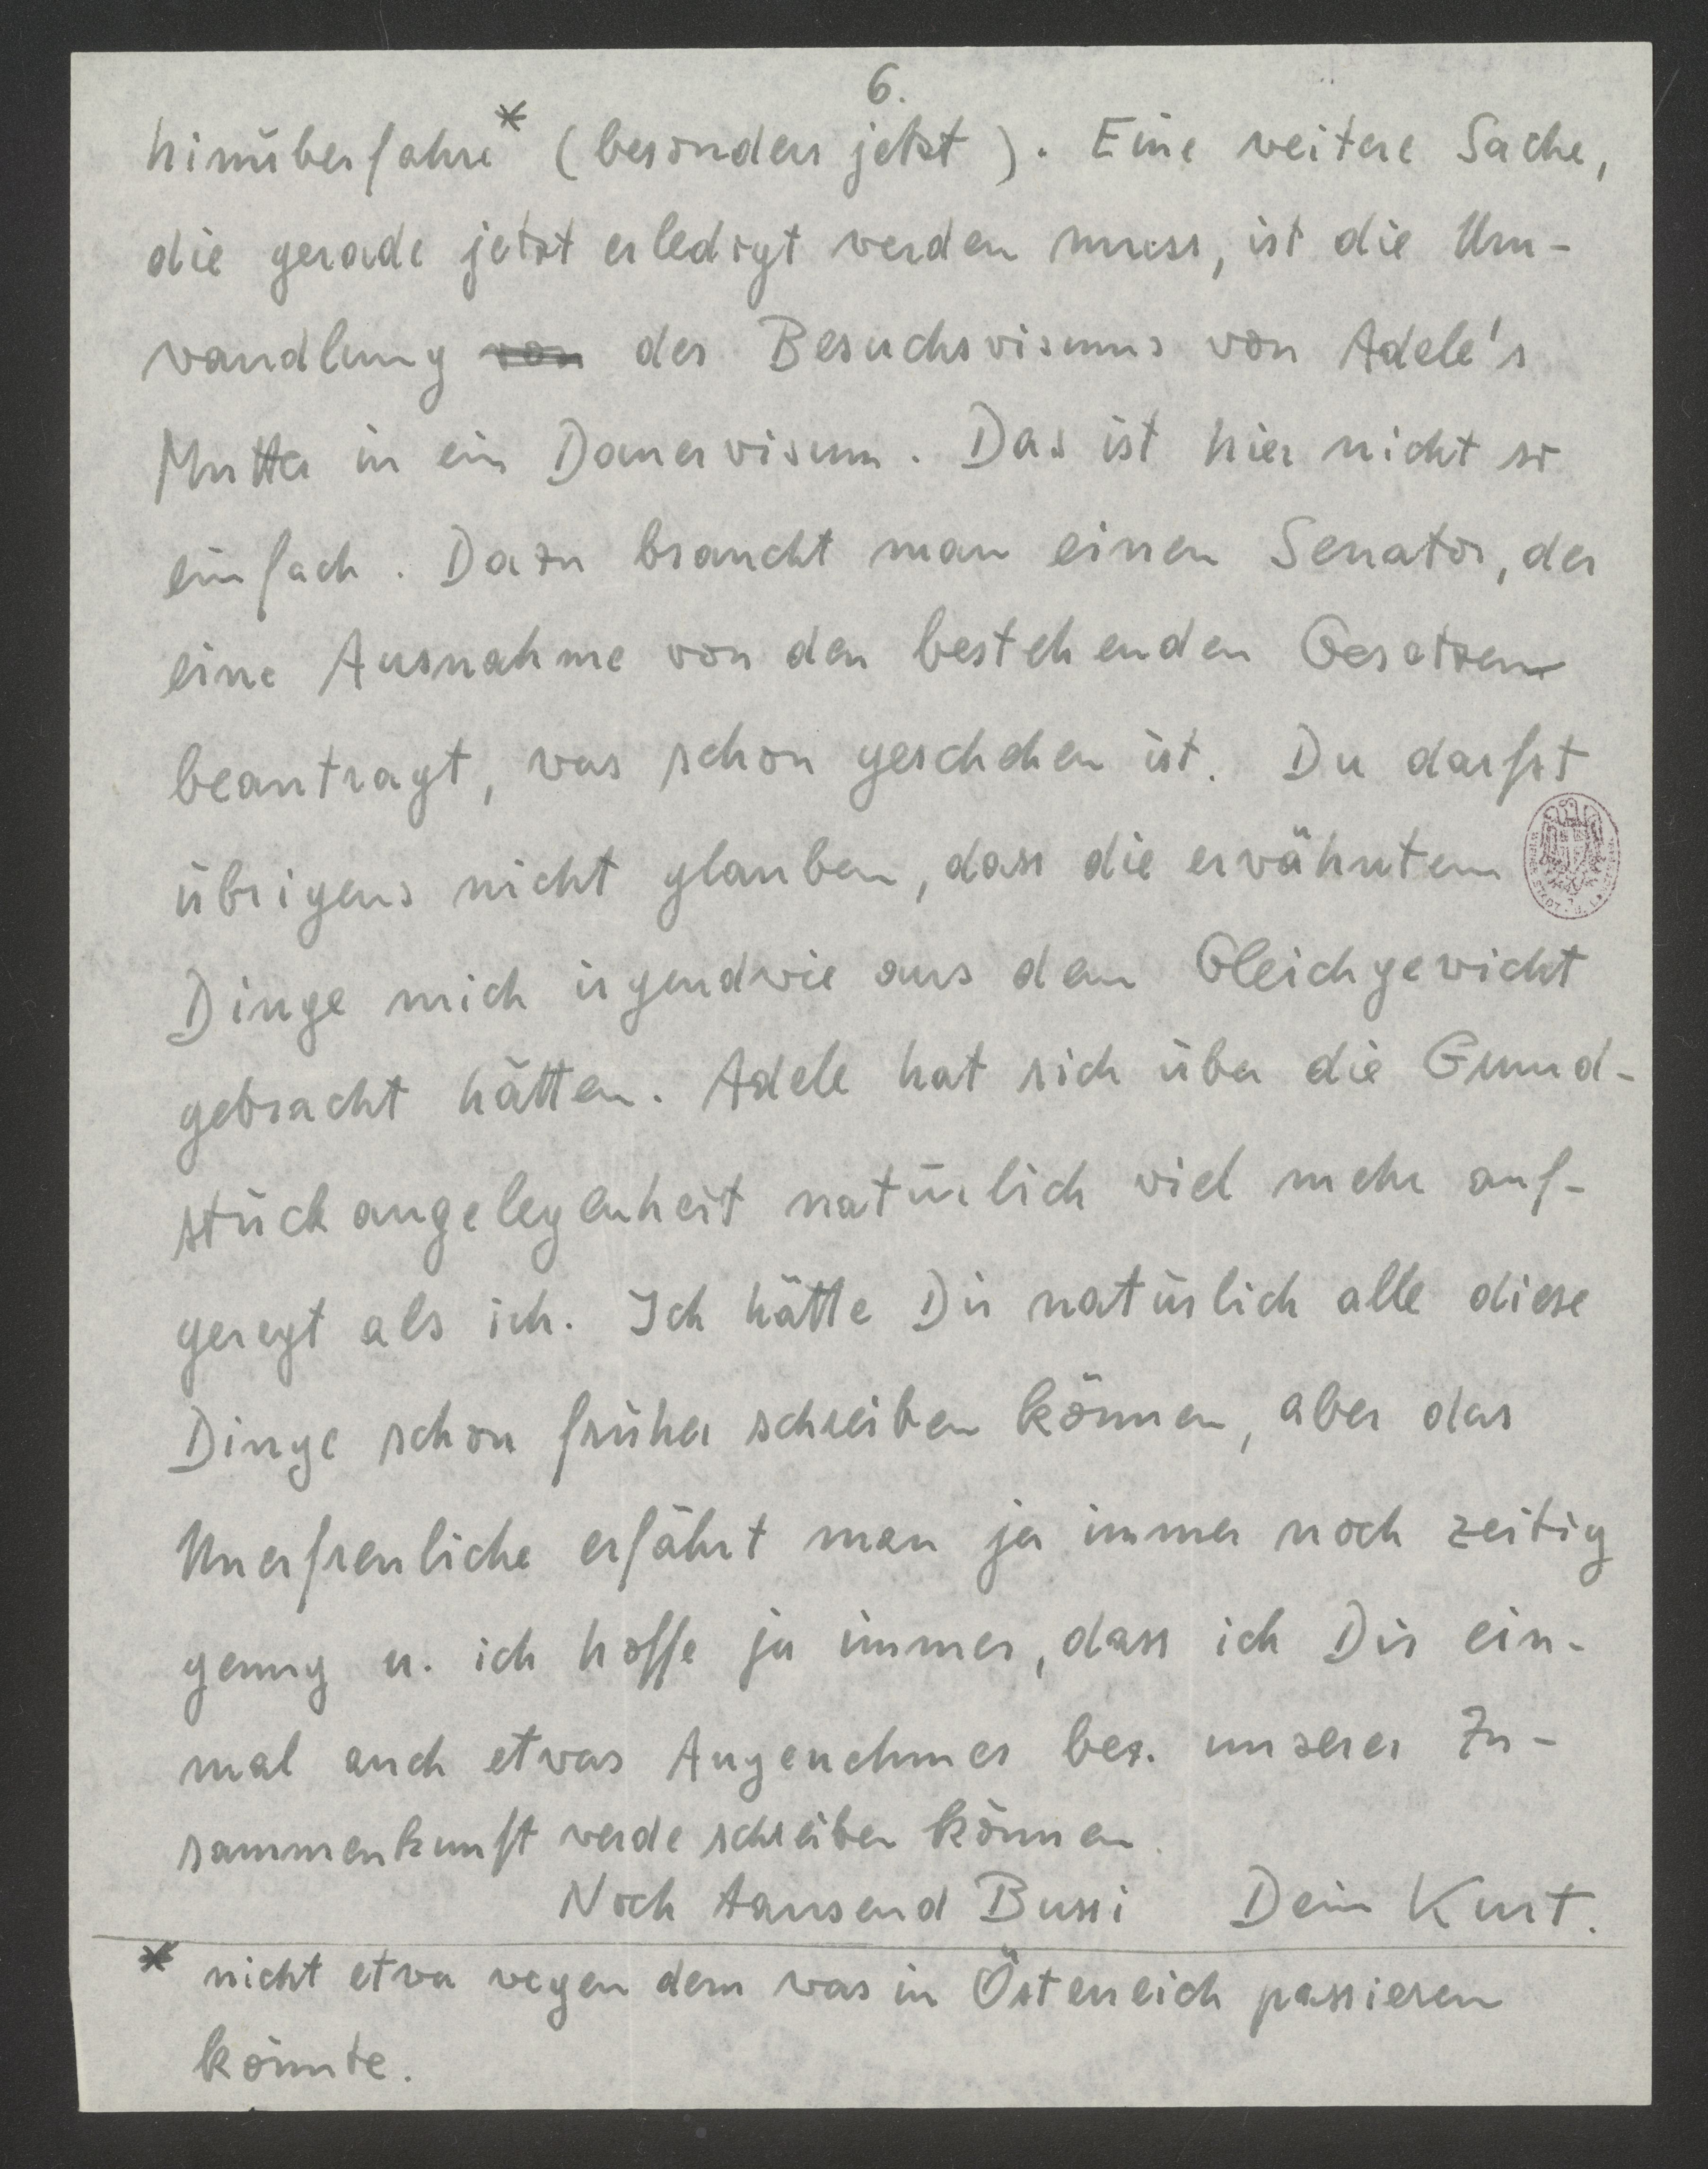 6.
hinüberfahre* (besonders jetzt). Eine weitere Sache,
die gerade jetzt erledigt werden muss, ist die Um-
wandlung von des Besuchsvisums von Adele's
Mutter in ein Dauervisum. Das ist hier nicht so
einfach. Dazu braucht man einen Senator, der
eine Ausnahme von den bestehenden Gesetzen
beantragt, was schon geschehen ist. Du darfst
übrigens nicht glauben, dass die erwähnten
Dinge mich irgendwie aus dem Gleichgewicht
gebracht hätten. Adele hat sich über die Grund-
stückangelegenheit natürlich viel mehr auf-
geregt als ich. Ich hätte Dir natürlich alle diese
Dinge schon früher schreiben können, aber das
Unerfreuliche erfährt man ja immer noch zeitig
genug u. ich hoffe ja immer, dass ich Dir ein-
mal auch etwas Angenehmes bez. unserer Zu-
sammenkunft werde schreiben können.
Noch tausend Bussi Dein Kurt.
* nicht etwa wegen dem was in Österreich passieren
könnte.